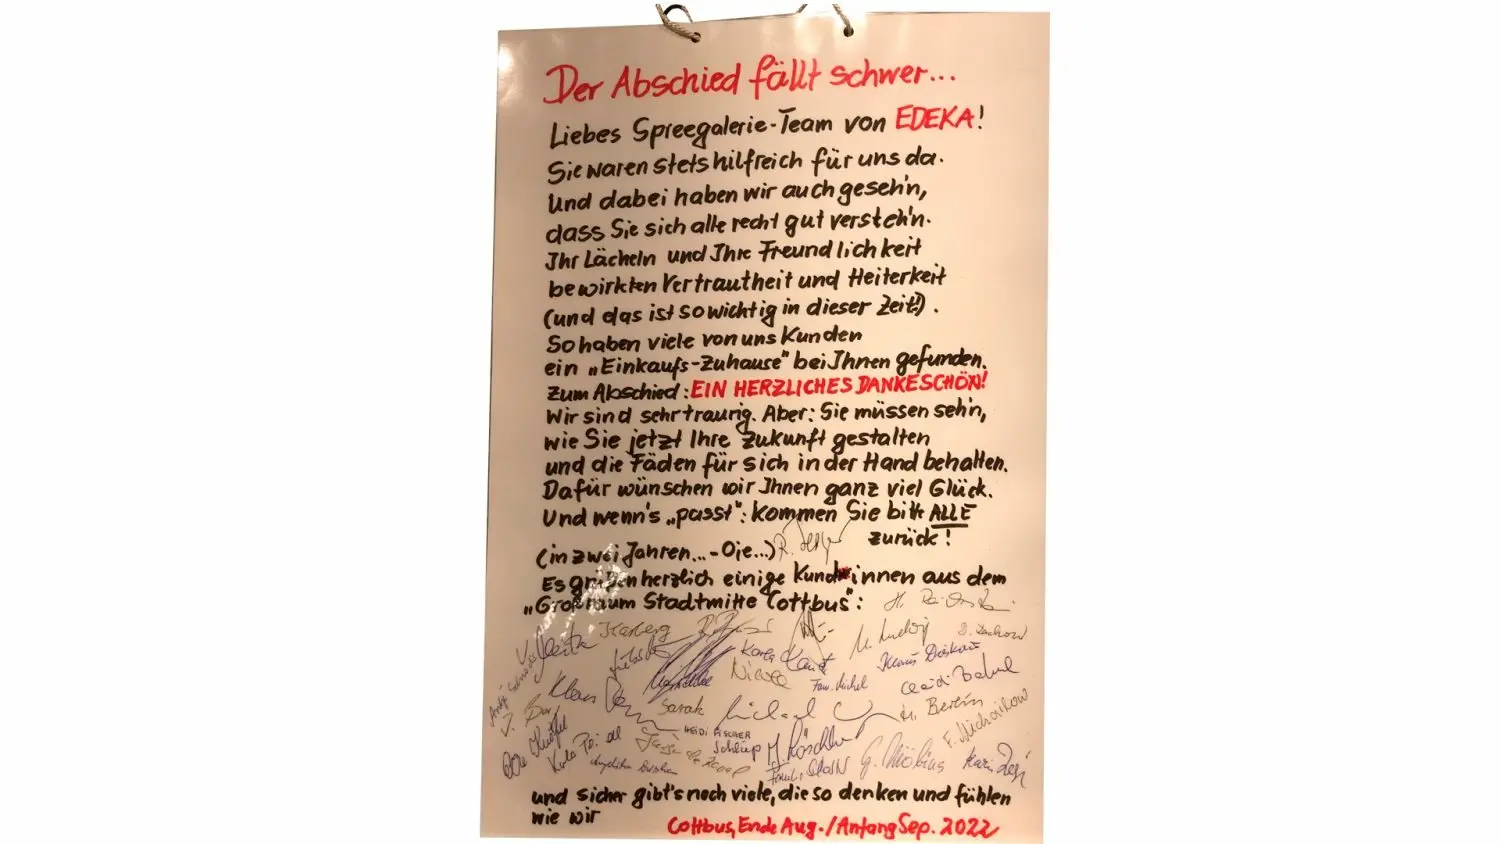 Der Abschied fällt schwer...
Liebes Spreegalerie-Team von EDEKA!
Sie waren stets hilfreich für uns da.
Und dabei haben wir auch geseh'n,
dass Sie sich alle recht gut versteh'n.
Ihr Lächeln und Ihre Freundlichkeit
bewirkten Vertrautheit und Heiterkeit
(und das ist so wichtig in dieser Zeit!).
So haben viele von uns Kunden
ein „Einkaufs-Zuhause" bei Ihnen gefunden.
Zum Abschied: EIN HERZLICHES DANKESCHÖN!
Wir sind sehr traurig. Aber: Sie müssen seh'n,
wie Sie jetzt Ihre Zukunft gestalten
und die Fäden für sich in der Hand behalten.
Dafür wünschen wir Ihnen ganz viel Glück.
Und wenn's „passt": Kommen Sie bitte ALLE
zurück!
(in zwei Jahren...-Oje...)
Es grüßen herzlich einige Kund*innen aus dem
„Großraum Stadtmitte Cottbus":
M. Ludwig D. Zachow
Karla Klaus
Nicole Fam. Michel
Klaus Sarah Michael H. Berlin
HEIDI FISCHER F. Michailow
Schlüp G. Möbius Karin
Angelika Familie
und sicher gibt's noch viele, die so denken und fühlen
wie wir
Cottbus, Ende Aug./Anfang Sep. 2022